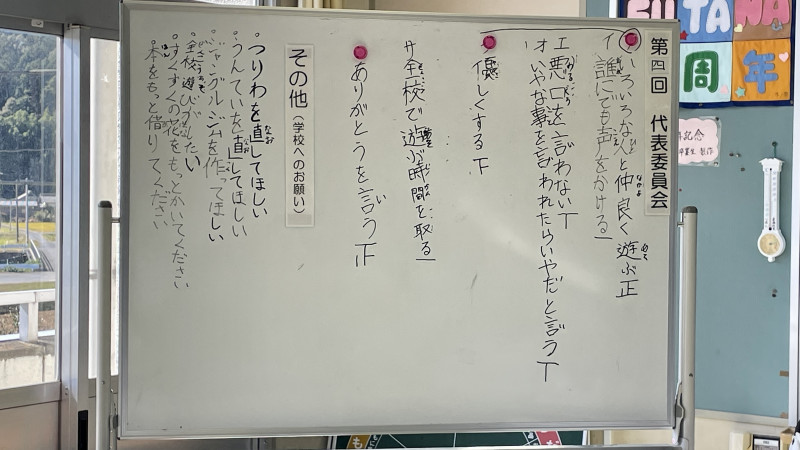 第四回 代表委員会
ア いろいろな人と仲良く遊ぶ 正
イ 誰にでも声をかける 一
エ 悪口を言わない T
オ いやな事を言われたらいやだと言う T
優しくする 下
サ 全校で遊ぶ時間を取る 一
ありがとうを言う 正
その他(学校へのお願い)
・つりわを直してほしい
・うんていを直してほしい
・ジャングルジムを作ってほしい
・全校遊びがしたい
・すくすくの花をもっとかいてください
・本をもっと借りてください
FUTANA
周年
記念